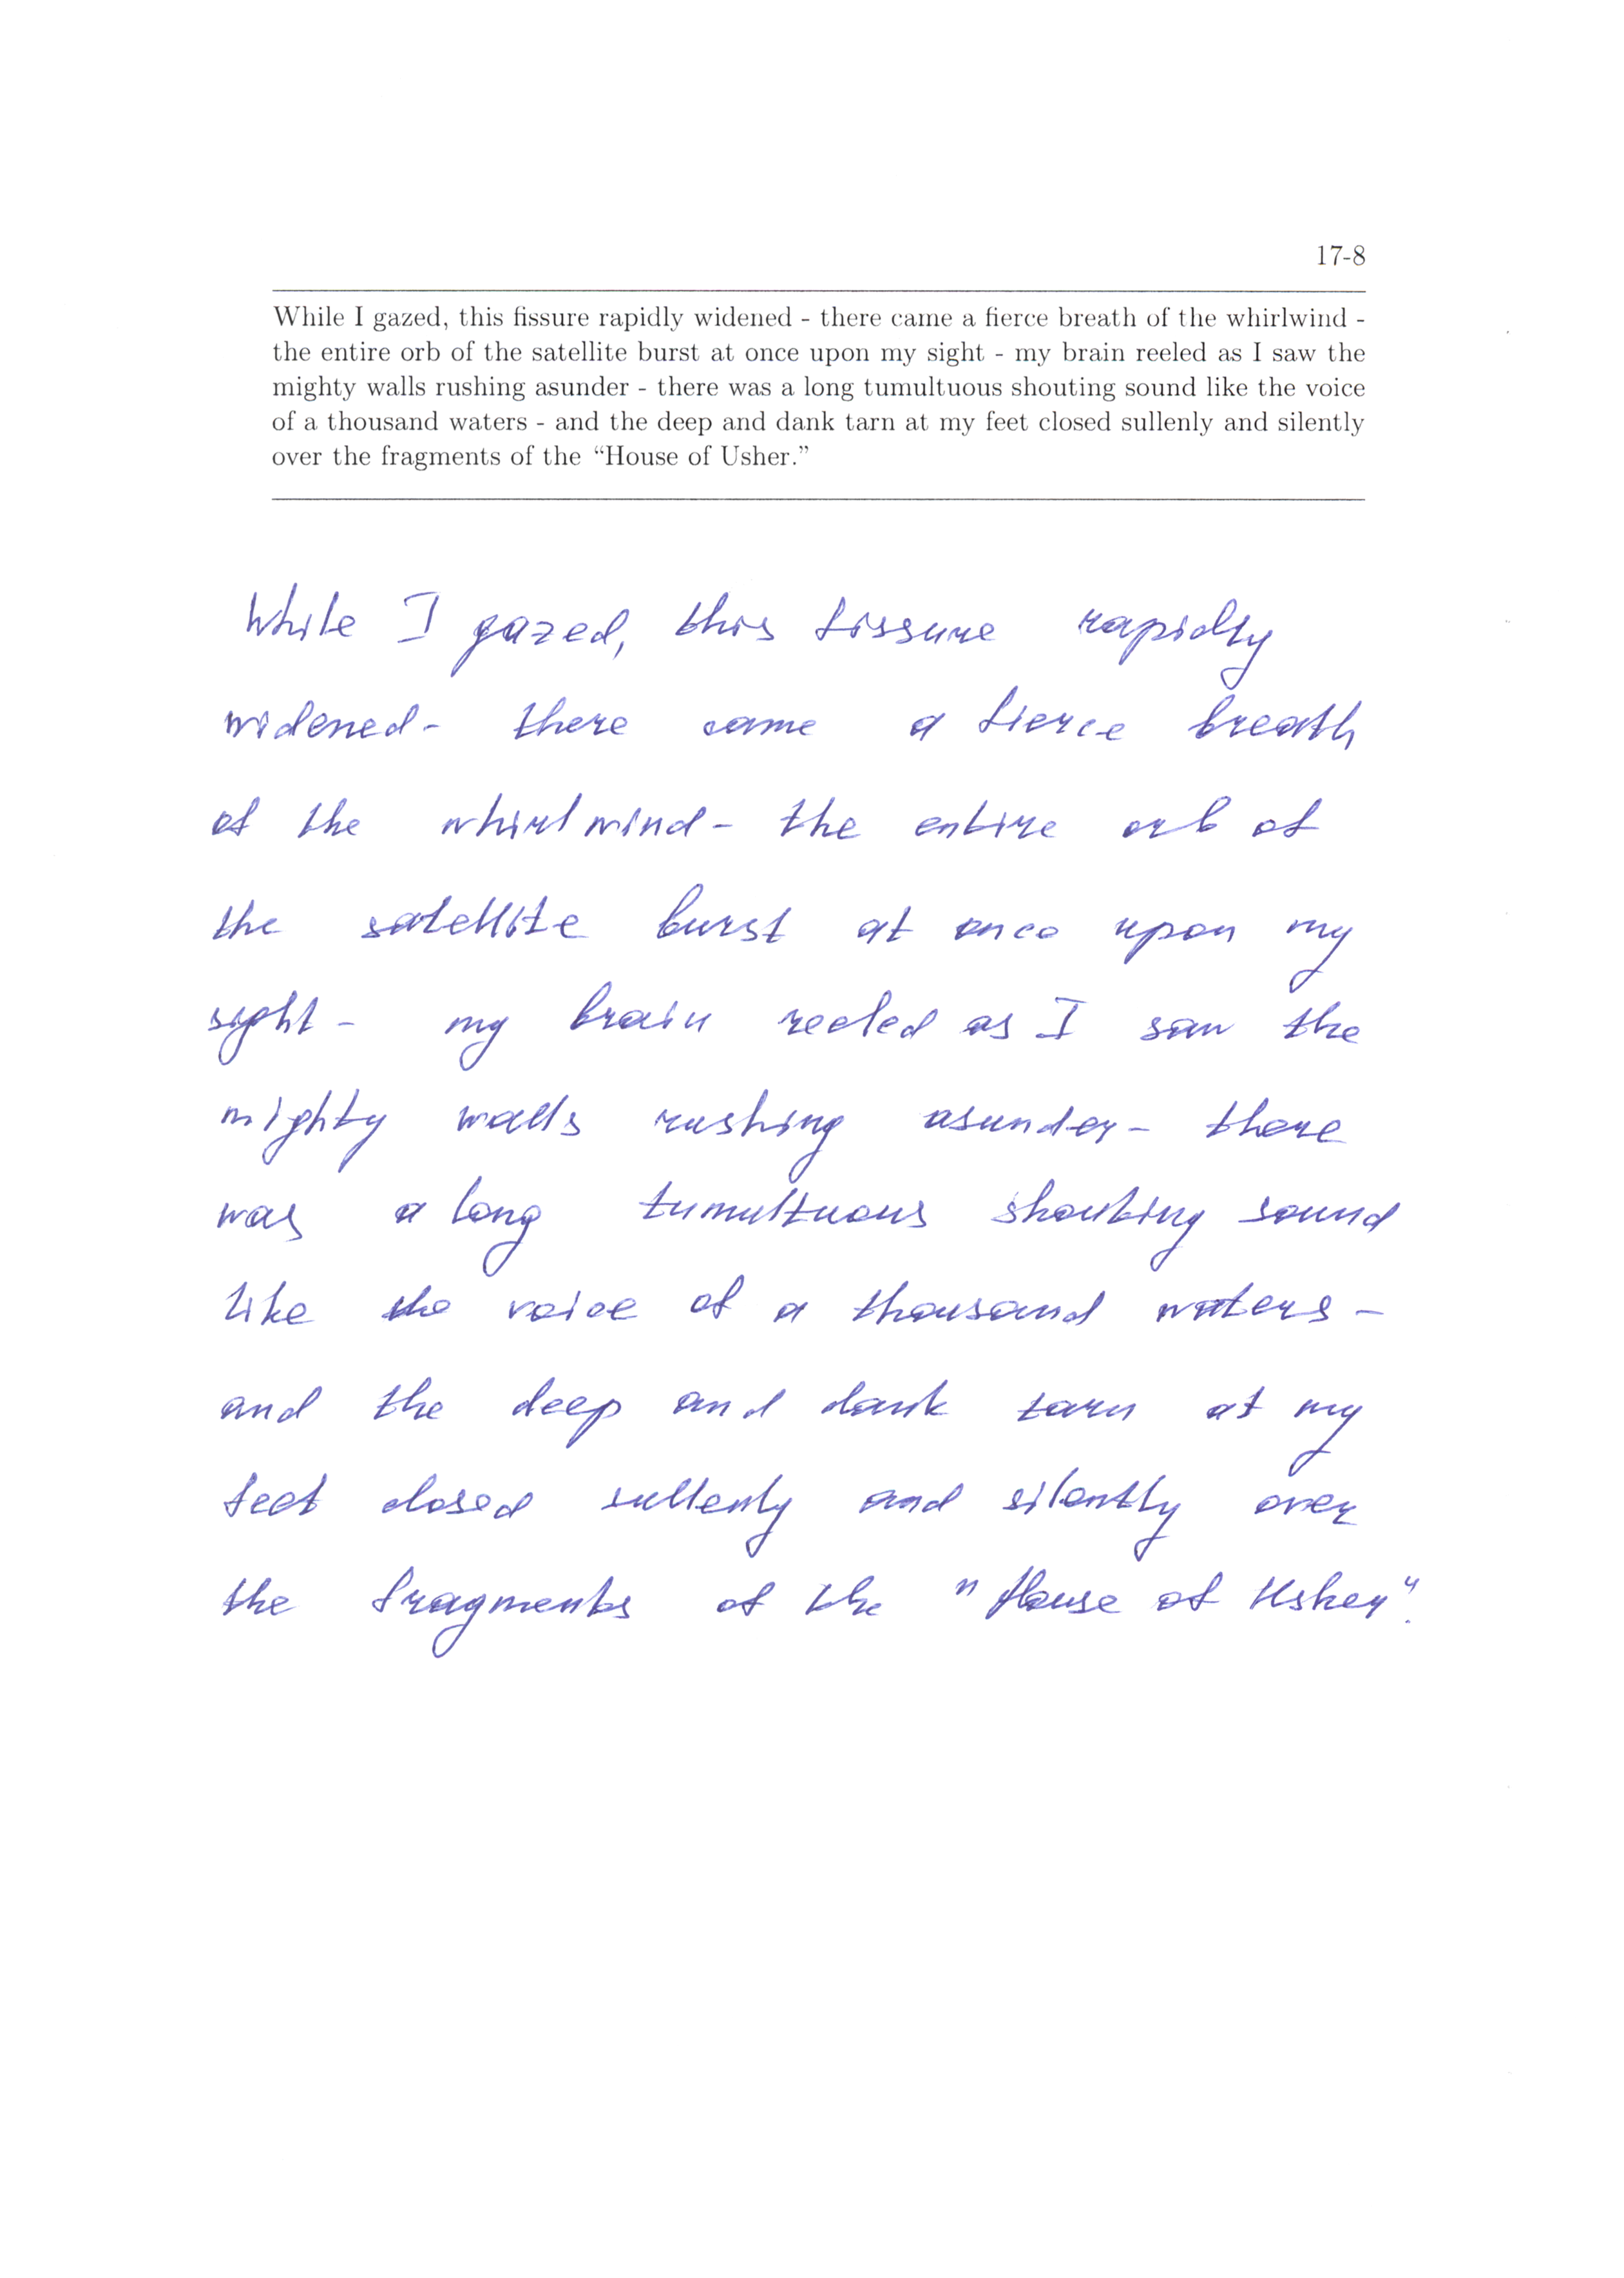 17-8
While I gazed, this fissure rapidly widened - there came a fierce breath of the whirlwind -
the entire orb of the satellite burst at once upon my sight - my brain reeled as I saw the
mighty walls rushing asunder - there was a long tumultuous shouting sound like the voice
of a thousand waters - and the deep and dank tarn at my feet closed sullenly and silently
over the fragments of the “House of Usher.”
While I gazed, this fissure rapidly
widened - there came a fierce breath
of the whirlwind - the entire orb of
the satellite burst at once upon my
sight - my brain reeled as I saw the
mighty walls rushing asunder - there
was a long tumultuous shouting sound
like the voice of a thousand waters -
and the deep and dank tarn at my
feet closed sullenly and silently over
the fragments of the "House of Usher".